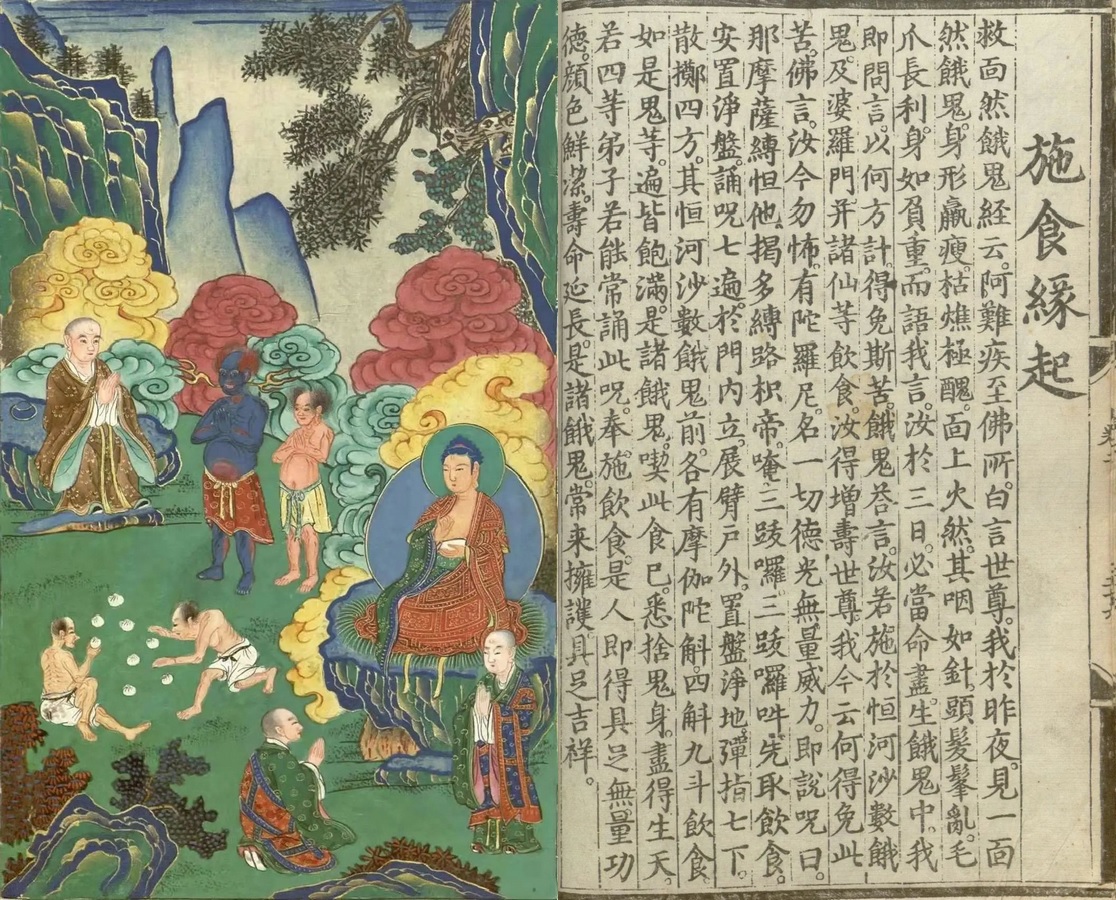 施食緣起
救面然餓鬼経云。阿難疾至佛所。白言世尊。我於昨夜。見一面
然餓鬼。身形羸瘦。枯燋極醜。面上火然。其咽如針。頭髮髼亂。毛
爪長利。身如負重。而語我言。汝於三日。必當命盡。生餓鬼中。我
即問言。以何方計。得免斯苦。餓鬼荅言。汝若施於恒河沙數餓
鬼。及婆羅門。并諸仙等飲食。汝得增壽。世尊。我今云何得免此
苦。佛言。汝今勿怖。有陀羅尼。名一切德光無量威力。即說呪曰。
那摩薩縛怛他。揭多縛路枳帝。唵。三跋囉三跋囉吽。先取飲食。
安置淨盤。誦呪七遍。於門內立。展臂戶外。置盤淨地。彈指七下。
散擲四方。其恒河沙數餓鬼前。各有摩伽陀斛。四斛九斗飲食。
如是鬼等。遍皆飽滿。是諸餓鬼。喫此食已。悉捨鬼身。盡得生天。
若四等弟子。若能常誦此呪。奉施飲食。是人即得具足無量功
德。顏色鮮潔。壽命延長。是諸餓鬼。常來擁護。具足吉祥。